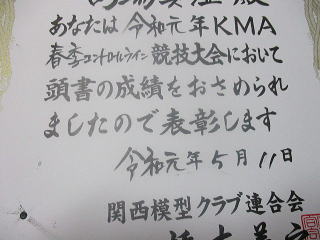 あなたは令和元年KMA
春季コントロールライン競技大会において
頭書の成績をおさめられ
ましたので表彰します
令和元年5月11日
関西模型クラブ連合会